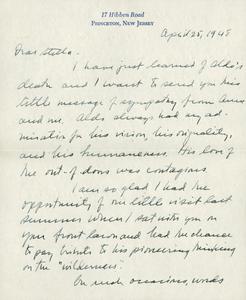 17 Hibben Road
Princeton, New Jersey
April 25, 1948
Dear Stella:
I have just learned of Aldo's
death and I want to send you this
little message of sympathy from
and me. Aldo always had my ad-
miration for his vision, his originality,
and his humaneness. His love of
the out-of doors was contagious
I am so glad I had the
opportunity of our little visit last
summer when I sat with you on
your front lawn and had the chance
to pay tribute to his pioneering thinking
on the "wilderness".
On such occasions, words